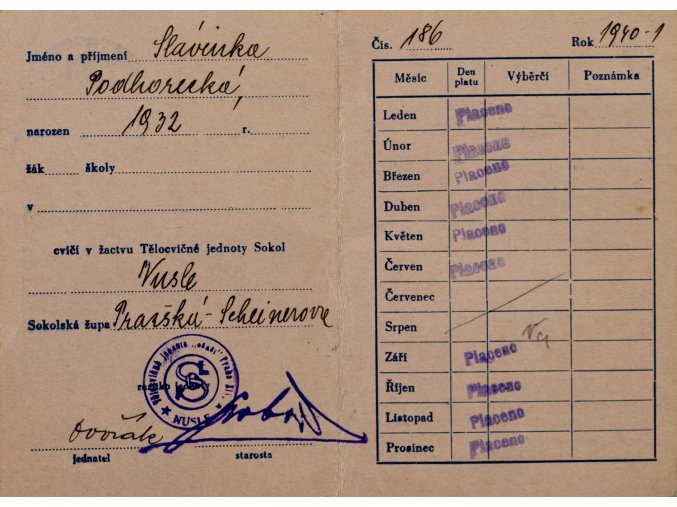 Jméno a příjmení Slávinka
Podhorecká,
narozen 1932 r.
žák školy
v
cvičí v žactvu Tělocvičné jednoty Sokol
Nusle
Sokolská župa Pražská-Scheinerova
razítko jednoty
NUSLE
Dvořák
jednatel starosta
Čís. 186 Rok 1940-1
Měsíc Den platu Výběrčí Poznámka
Leden Placeno
Únor Placeno
Březen Placeno
Duben Placeno
Květen Placeno
Červen Placeno
Červenec
Srpen
Září Placeno
Říjen Placeno
Listopad Placeno
Prosinec Placeno